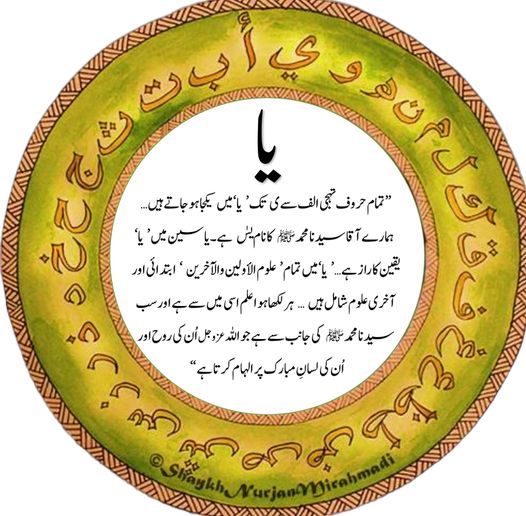 یا
”تمام حروف تہجی الف سے ی تک ’یا‘ میں یکجا ہو جاتے ہیں...
ہمارے آقا سیدنا محمد ﷺ کا نام یٰس ہے۔ یا سین میں ’یا‘
یقین کا راز ہے... ’یا‘ میں تمام ’علوم الاولین والآخرین‘ ابتدائی اور
آخری علوم شامل ہیں ... ہر لکھا ہوا علم اسی میں سے ہے اور سب
سیدنا محمد ﷺ کی جانب سے ہے جو اللہ عزوجل اُن کی روح اور
اُن کی لسانِ مبارک پر الہام کرتا ہے“
أ ب ت ث ج ح خ د ذ ر ز س ش ص ض ط ظ ع غ ف ق ك ل م ن ه و ي
©Shaykh Nurjan Mirahmadi